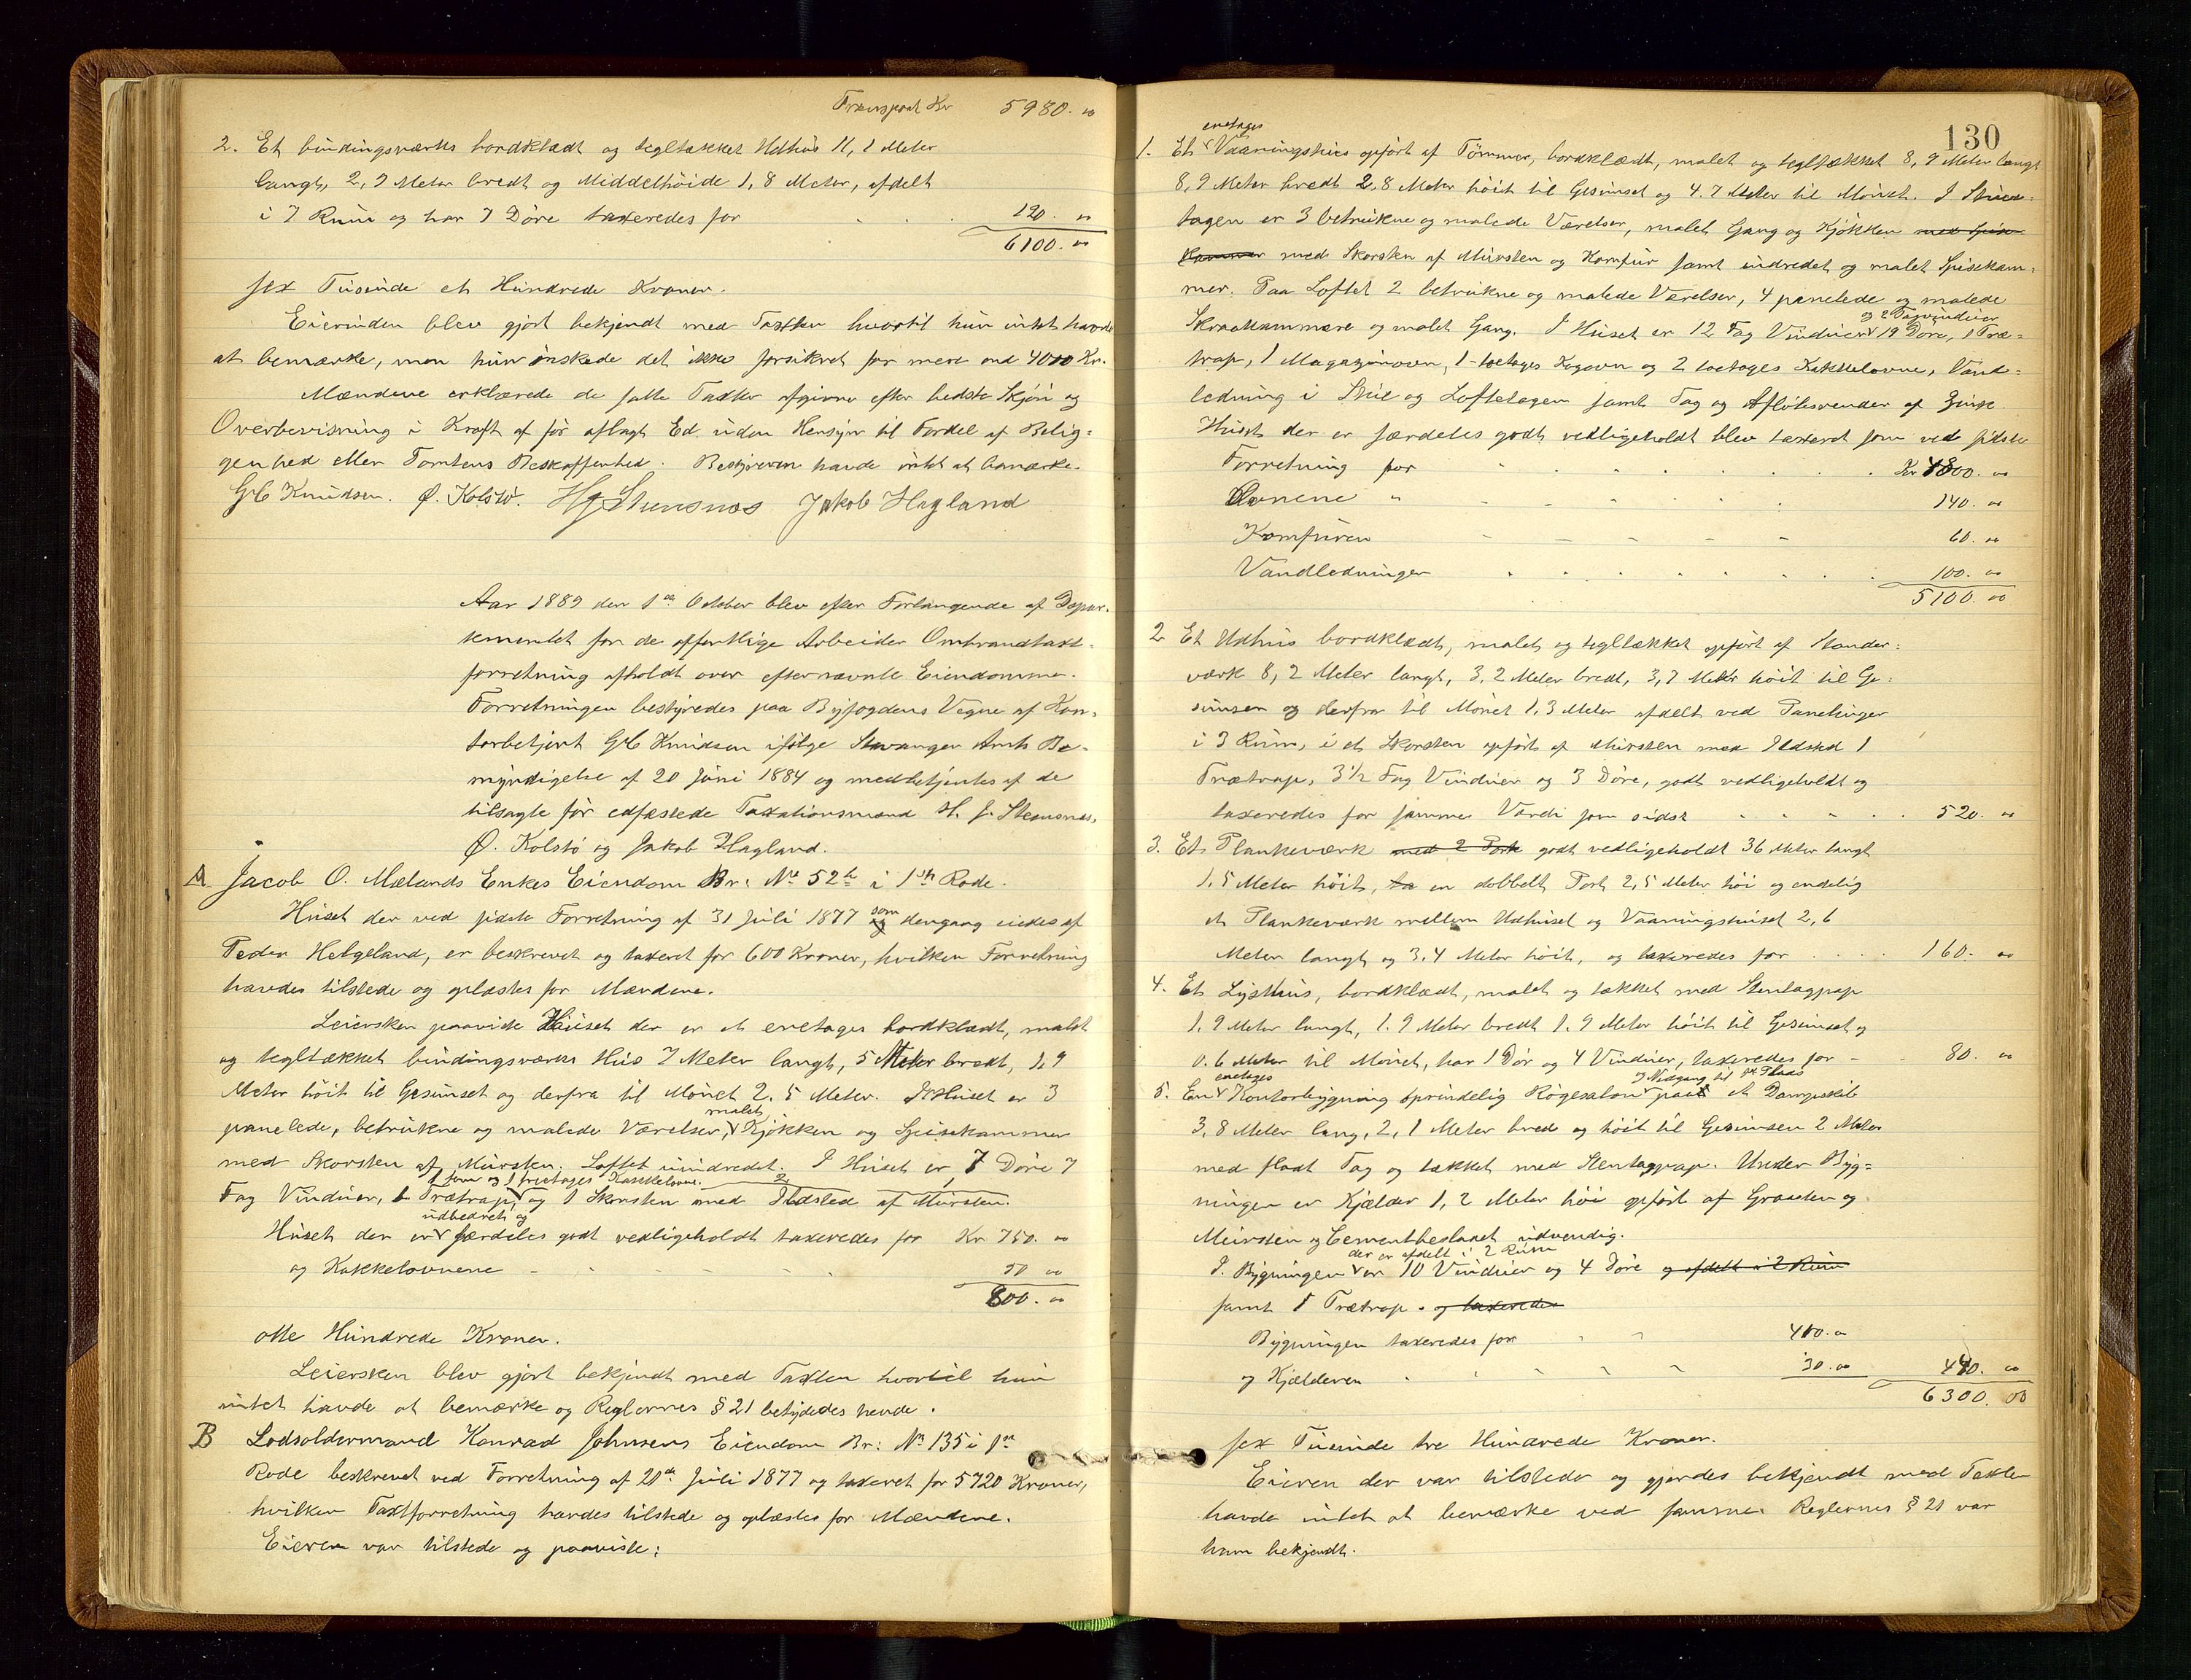 Transport Kr 5980. 00
2. Et bindingsværks bordklædt og tegltækket Udhus 11,1 Meter
langt, 2,9 Meter bredt og Middelhöide 1,8 Meter, afdelt
i 7 Rum og har 7 Döre taxeredes for . . . 120. 00
6100. 00
sex Tusinde et Hundrede Kroner.
Eierinden blev gjort bekjendt med Taxten hvortil hun intet havde
at bemærke, men hun önskede det ikke forsikret for mere end 4000 Kr.
Mændene erklærede de satte Taxter afgivne efter bedste Skjön og
Overbevisning i Kraft af för aflagt Ed uden Hensyn til Fordel af Belig=
genhed eller Tomtens Beskaffenhed. Bestyreren havde intet at bemærke.
GC Knudsen. Ø. Kolstö. HJ Stensnes Jakob Hagland
Aar 1889 den 1ste October blev efter Forlangende af Depar=
tementet for de offentlige Arbeider Ombrandtaxt=
forretning afholdt over efternævnte Eiendomme.
Forretningen bestyredes paa Byfogdens Vegne af Kon=
torbetjent GC Knudsen ifölge Stavanger Amts Be=
myndigelse af 20 Juni 1884 og medbetjentes af de
tilsagte för edfæstede Taxationsmænd H. J. Stensnes,
Ø. Kolstö og Jakob Hagland.
A. Jacob O. Mælands Enkes Eiendom Br: No 52 i 1ste Rode.
Huset der ved sidste Forretning af 31 Juli 1877 som dengang eiedes af
Peder Helgeland, er beskrevet og taxeret for 600 Kroner, hvilken Forretning
havdes tilstede og oplæstes for Mændene.
Leiersken paaviste Huset der er et enetages bordklædt, malet
og tegltækket bindingsværks Hus 7 Meter langt, 5 Meter bredt, 1,9
Meter höit til Gesimset og derfra til Mönet 2,5 Meter. I Huset er 3
panelede, betrukne og malede Værelser, malet Kjökken og Spisekammer
med Skorsten af Mursten. Loftet uindredet. I Huset er 7 Döre 7
Fag Vinduer, 1 Trætrap, og 1 Skorsten med Ildsted af Mursten.
Huset der er udbedret og særdeles godt vedligeholdt taxeredes for Kr 750. 00
og Kakkelovnene - - - - - 50 00
800. 00
otte Hundrede Kroner.
Leiersken blev gjort bekjendt med Taxten hvortil hun
intet havde at bemærke og Reglernes § 21 betydedes hende.
B Lodsoldermand Konrad Johnsens Eiendom Br: No 135 i 1ste
Rode beskrevet ved Forretning af 21de Juli 1877 og taxeret for 5720 Kroner,
hvilken Taxtforretning havdes tilstede og oplæstes for Mændene.
Eieren var tilstede og paaviste:
130
1. Et enetages Vaaningshus opfört af Tömmer, bordklædt, malet og tegltækket 8,9 Meter langt
8,9 Meter bredt 2,8 Meter höit til Gesimset og 4.7 Meter til Mönet. I Stue=
tagen er 3 betrukne og malede Værelser, malet Gang og Kjökken med Spise
kammer med Skorsten af Mursten og Komfur samt indredet og malet Spisekam=
mer. Paa Loftet 2 betrukne og malede Værelser, 4 panelede og malede
Skraakammere og malet Gang. I Huset er 12 Fag Vinduer og 2 Tagvinduer 19 Döre, 1 Træ=
trap, 1 Magazinovn, 1-toetages Kogeovn og 2 toetages Kakkelovne, Vand=
ledning i Stue og Loftetagen samt Tag og Aflöbsrender af Zink.
Huset der er særdeles godt vedligeholdt blev taxeret som ved sidste
Forretning for . . . . . . Kr 4800. 00
Ovnene " - - . . . 140. 00
Komfuren - - - - - 60. 00
Vandledningen . . . . . . 100. 00
5100. 00
2 Et Udhus bordklædt, malet og tegltækket opfört af Stander=
værk 8,2 Meter langt, 3,2 Meter bredt, 3,7 Meter höit til Ge=
simsen og derfra til Mönet 1,3 Meter afdelt ved Panelinger
i 3 Rum, i et Skorsten opfört af Mursten med Ildsted 1
Trætrap, 3½ Fag Vinduer og 3 Döre, godt vedligeholdt og
taxeredes for samme Værdi som sidst . . . . . 520. 00
3. Et Plankeværk med 2 Porte godt vedligeholdt 36 Meter langt
1,5 Meter höit, en dobbelt Port 2,5 Meter höi og endelig
et Plankeværk mellem Udhuset og Vaaningshuset 2,6
Meter langt og 3,4 Meter höit, og taxeredes for . . . . 160. 00
4. Et Lysthus, bordklædt, malet og tækket med Stentagpap
1,9 Meter langt, 1.9 Meter bredt 1.9 Meter höit til Gesimset og
0.6 Meter til Mönet, har 1 Dör og 4 Vinduer, taxeredes for - 80. 00
5. En enetages Kontorbygning oprindelig Rögesalon og Nedgang til paa et Dampskib
3,8 Meter lang, 2,1 Meter bred og höit til Gesimsen 2 Meter
med fladt Tag og tækket med Stentagpap. Under Byg=
ningen er Kjælder 1,2 Meter höi opfört af Graasten og
Mursten og Cementbeslaaet udvendig.
I Bygningen der er afdelt i 2 Rum er 10 Vinduer og 4 Döre og afdelt i 2 Rum
samt 1 Trætrap. og taxeredes
Bygningen taxeredes for - - 410. 00
og Kjælderen - - - - - 30. 00 440. 00
6300. 00
sex Tusinde tre Hundrede Kroner.
Eieren der var tilstede og gjordes bekjendt med Taxten
havde intet at bemærke ved samme. Reglernes § 21 var
ham bekjendt.